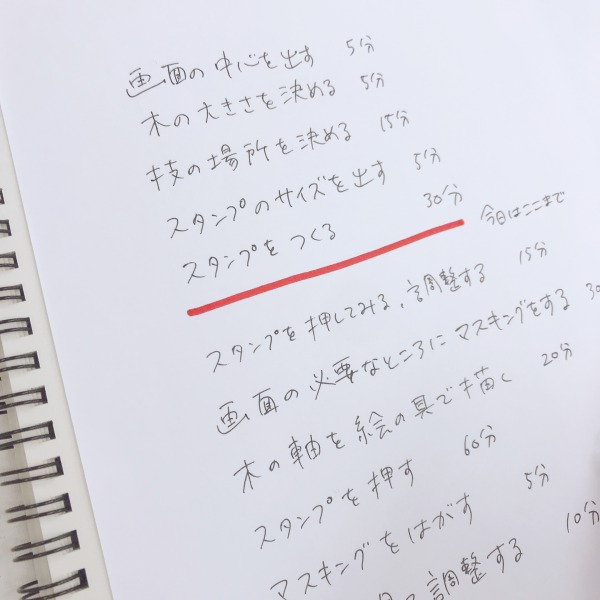 画面の中心を出す 5分
木の大きさを決める 5分
枝の場所を決める 15分
スタンプのサイズを出す 5分
スタンプをつくる 30分
今日はここまで
スタンプを押してみる、調整する 15分
画面の必要なところにマスキングをする 30
木の軸を絵の具で描く 20分
スタンプを押す 60分
マスキングをはがす 5分
調整する 10分